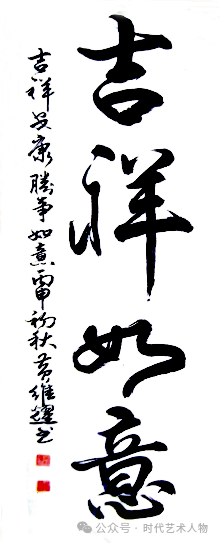 吉祥如意
吉祥安康勝事如意丙申初秋黄維书
公众号·时代艺术人物